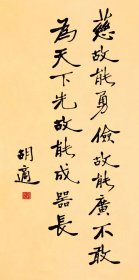 慈故能勇儉故能廣不敢
為天下先故能成器長
胡適